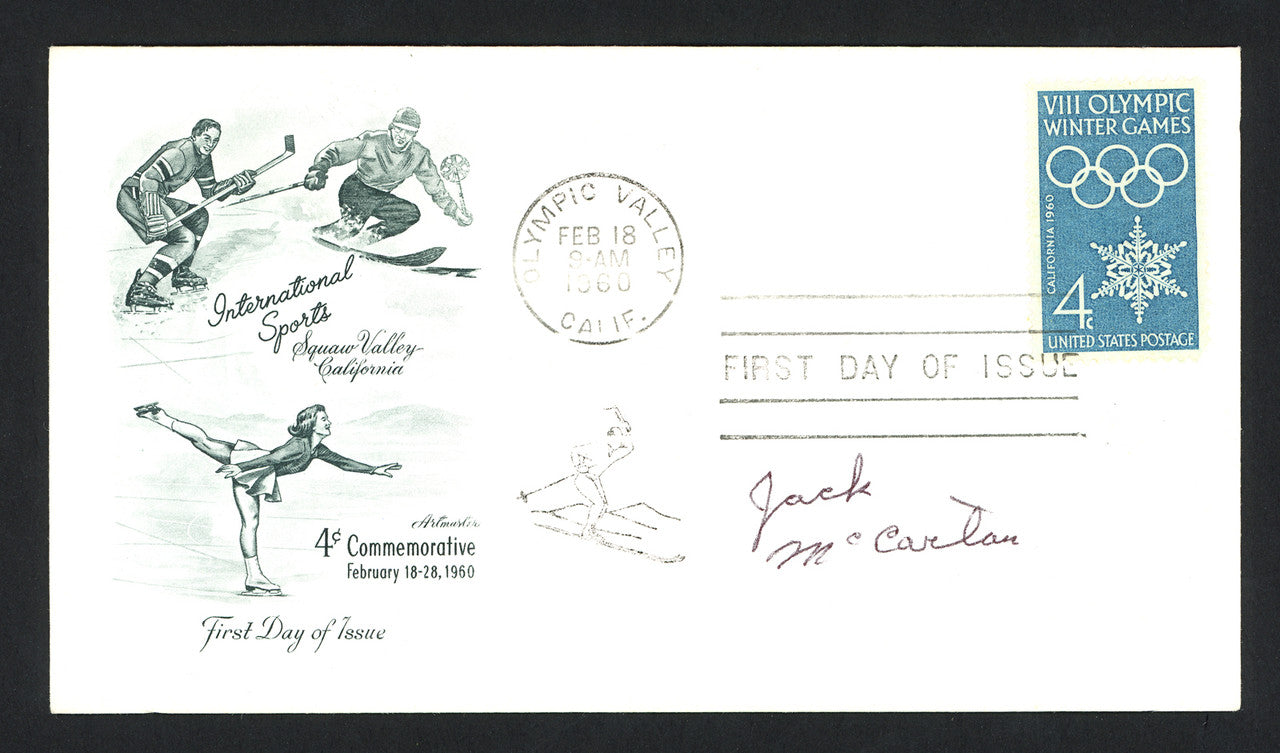 International
Sports
Squaw Valley
California
Artmaster
4¢ Commemorative
February 18-28, 1960
First Day of Issue
OLYMPIC VALLEY
FEB 18
8-AM
1960
CALIF.
VIII OLYMPIC
WINTER GAMES
CALIFORNIA 1960
4c
UNITED STATES POSTAGE
FIRST DAY OF ISSUE
Jack
McCartan